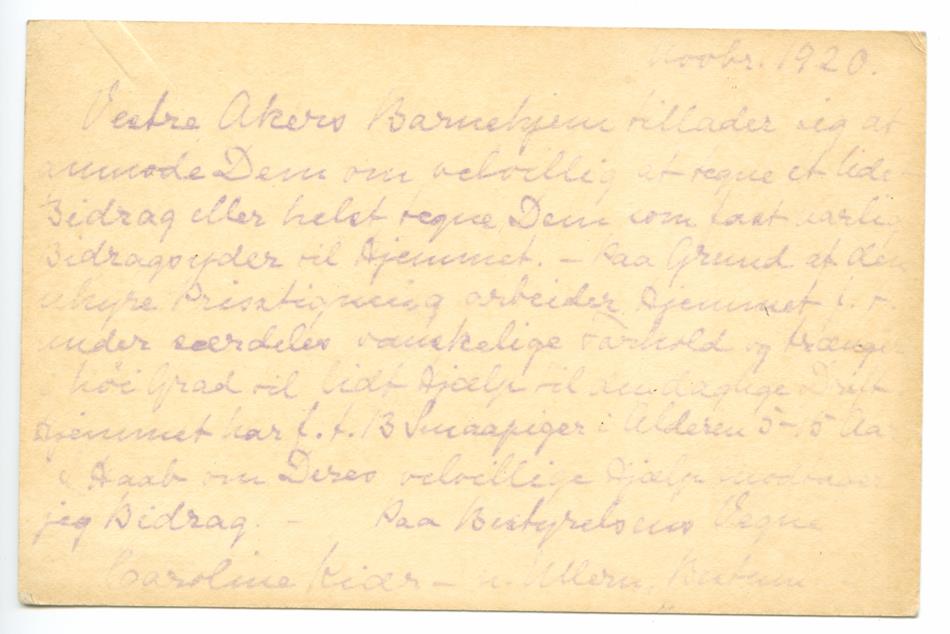 Novbr. 1920.
Vestre Akers Barnehjem tillader sig at
anmode Dem om velvillig at tegne et lidet
Bidrag eller helst tegne Dem som fast aarlig
Bidragsyder til Hjemmet. – Paa Grund af den
uhyre Prisstigning arbeider Hjemmet f. t.
under særdeles vanskelige Forhold og trænger
i høi Grad til lidt Hjælp til den daglige Drift
Hjemmet har f. t. 13 Smaapiger i Alderen 5–15 Aar
I Haab om Deres velvillige Hjælp modtager
jeg Bidrag. – Paa Bestyrelsens Vegne
Caroline Kiær – Ullern, Bestum